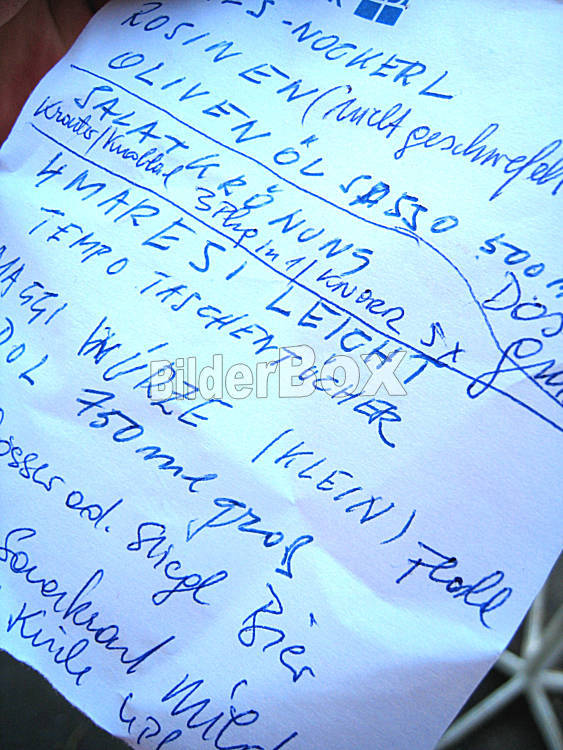 S-NOCKERL
ROSINEN (nicht geschwefelt
OLIVENÖL SASSO 500 m
DOS
SALATKRÖNUNG
Kräuter/Knoblauch 3 Pkg in 1/KNORR 5x
4 MARESI LEICHT
TEMPO TASCHENTÜCHER
MAGGI WÜRZE (KLEIN)
DOL 750ml groß
össer od. Stiegl Bier
Sauerkraut mild
BilderBOX